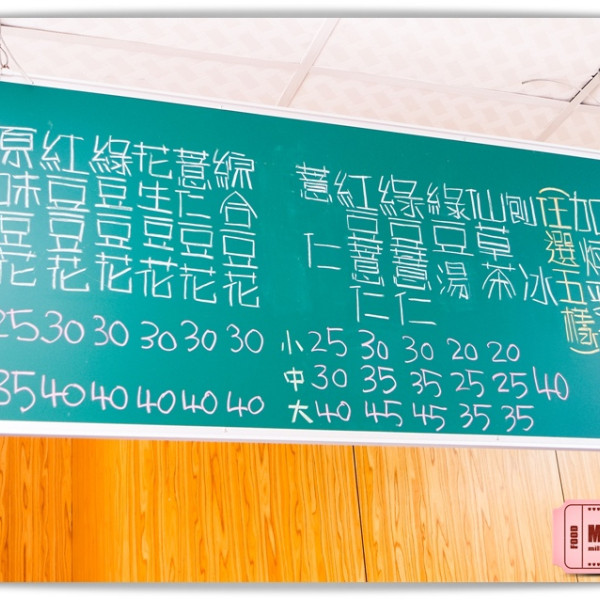 原味豆花
紅豆豆花
綠豆豆花
花生豆花
薏仁豆花
綜合豆花
25 30 30 30 30 30
35 40 40 40 40 40
薏仁
紅豆薏仁
綠豆薏仁
綠豆湯
仙草茶
刨冰
(任選五樣)
加
小 25 30 30 20 20
中 30 35 35 25 25 40
大 40 45 45 35 35
FOOD